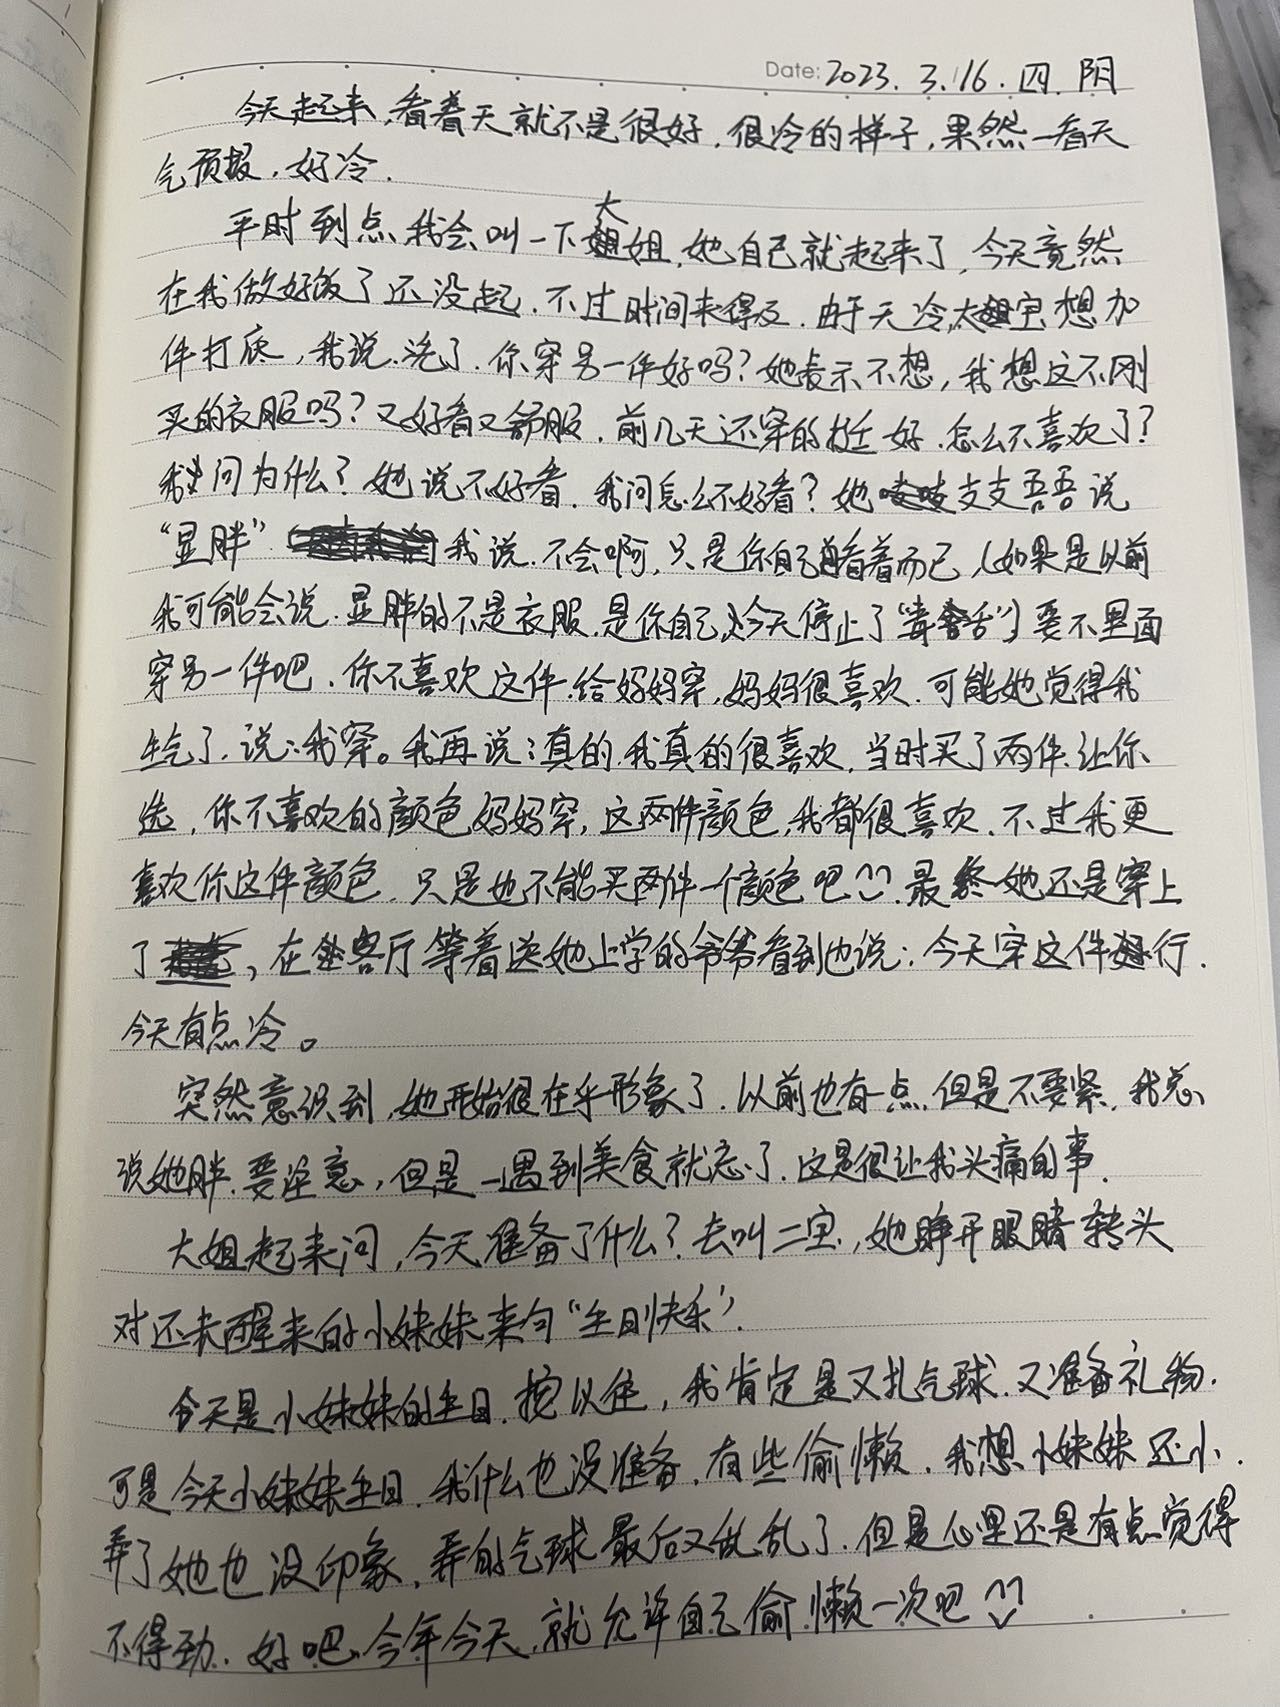 Date: 2023.3.16.四.阴
今天起来,看着天就不是很好.很冷的样子,果然一看天
气预报,好冷.
平时到点,我会叫一下大姐,她自己就起来了,今天竟然
在我做好饭了还没起.不过时间来得及.由于天冷,大宝想加
件打底,我说.洗了.你穿另一件好吗?她表示不想,我想这不刚
买的衣服吗?又好看又舒服.前几天还穿的挺好.怎么不喜欢了?
我问为什么?她说不好看.我问怎么不好看?她支支吾吾说
“显胖”我说.不会啊,只是你自己看着而已,(如果是以前
我可能会说.显胖的不是衣服.是你自己,今天停止了“毒舌”)要不里面
穿另一件吧.你不喜欢这件.给妈妈穿,妈妈很喜欢.可能她觉得我
生气了.说:我穿。我再说:真的.我真的很喜欢.当时买了两件.让你
选,你不喜欢的颜色妈妈穿,这两件颜色,我都很喜欢.不过我更
喜欢你这件颜色.只是也不能买两件一个颜色吧.最终她还是穿上
了,在客厅等着送她上学的爷爷看到也说:今天穿这件行.
今天有点冷。
突然意识到,她开始很在乎形象了.以前也有一点.但是不要紧.我总
说她胖.要注意,但是一遇到美食就忘了.这是很让我头痛的事.
大姐起来问,今天准备了什么?去叫二宝,她睁开眼睛转头
对还未醒来的小妹妹来句“生日快乐”.
今天是小妹妹的生日.按以往,我肯定是又扎气球.又准备礼物.
可是今天小妹妹生日.我什么也没准备.有些偷懒.我想小妹妹还小.
弄了她也没印象,弄的气球最后又乱乱了.但是心里还是有点觉得
不得劲.好吧.今年今天.就允许自己偷懒一次吧